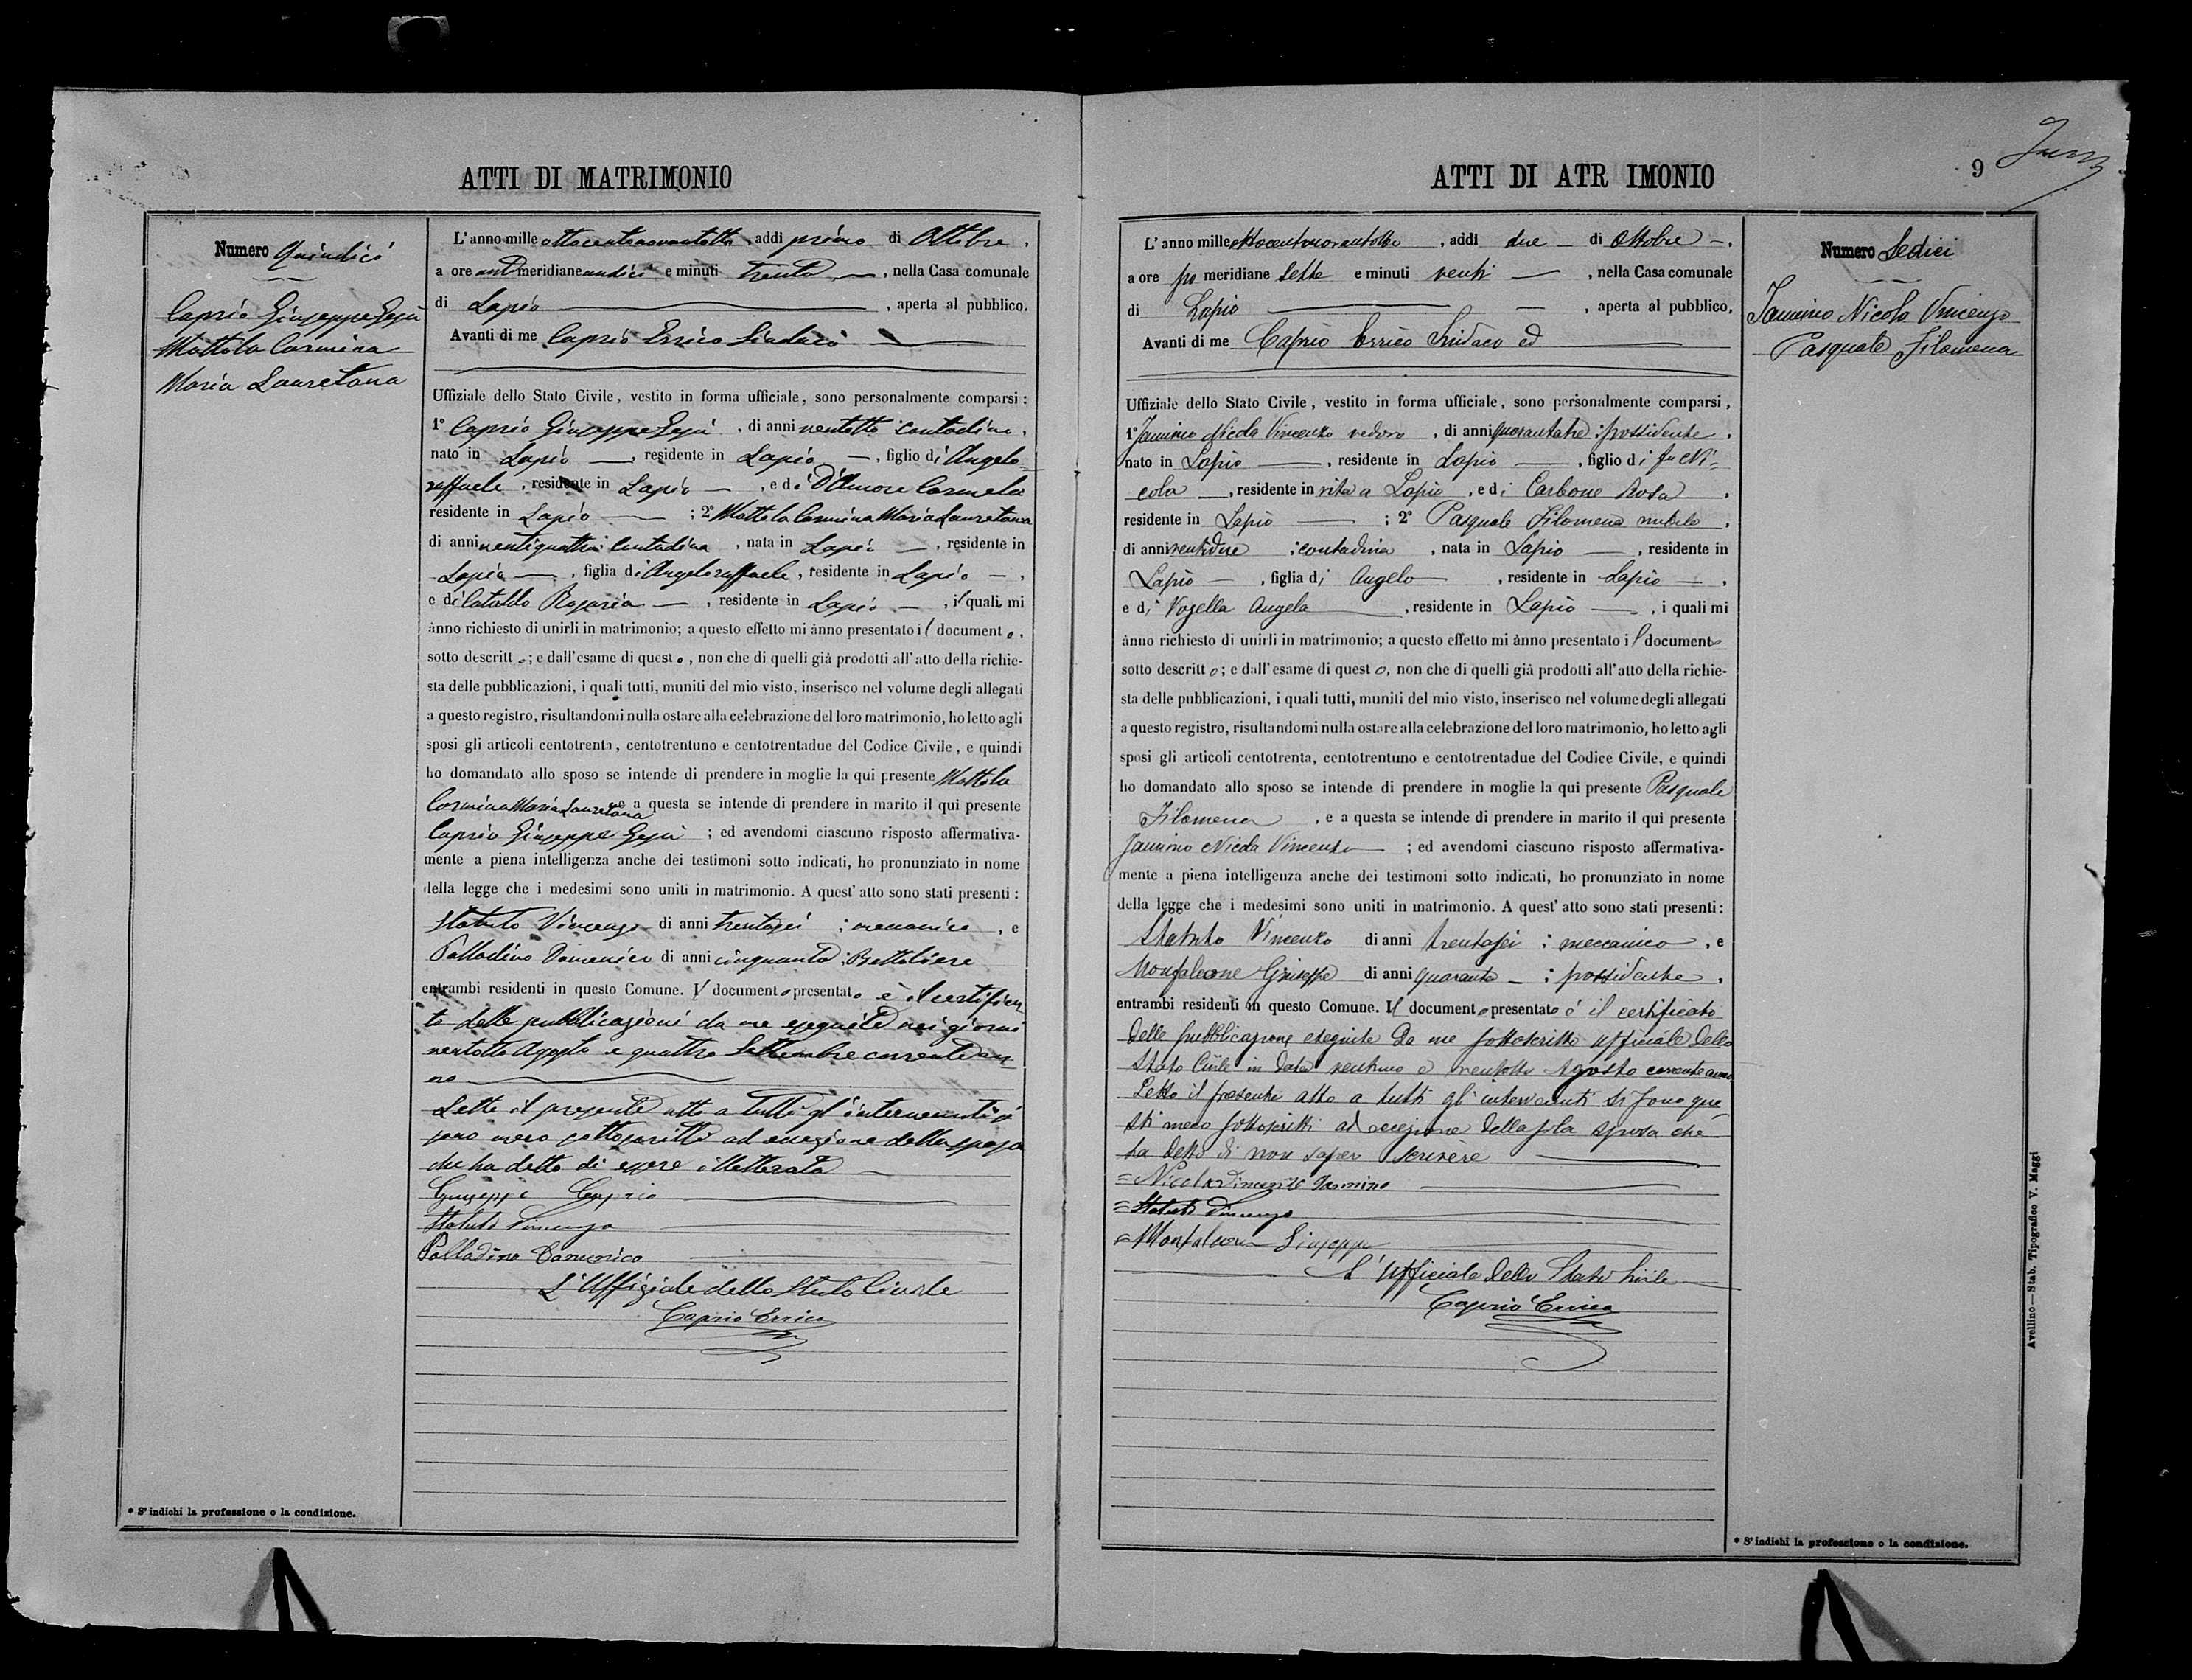 ATTI DI MATRIMONIO
Numero Quindici
Caprio Giuseppe Gesù
Mottola Carmina
Maria Lauretana
L'anno mille ottocentonovantotto, addì primo di Ottobre,
a ore antimeridiane undici e minuti trenta —, nella Casa comunale
di Lapio —, aperta al pubblico.
Avanti di me Caprio Errico Sindaco —
Uffiziale dello Stato Civile, vestito in forma ufficiale, sono personalmente comparsi:
1° Caprio Giuseppe Gesù, di anni ventotto contadino,
nato in Lapio —, residente in Lapio —, figlio di Angelo-
raffaele, residente in Lapio —, e di D'Amore Carmela
residente in Lapio —; 2° Mottola Carmina Maria Lauretana
di anni ventiquattro contadina, nata in Lapio —, residente in
Lapio —, figlia di Angeloraffaele, residente in Lapio —,
e di Cataldo Rosaria —, residente in Lapio —, i quali mi
ànno richiesto di unirli in matrimonio; a questo effetto mi ànno presentato il documento,
sotto descritto; e dall'esame di questo, non che di quelli già prodotti all'atto della richie-
sta delle pubblicazioni, i quali tutti, muniti del mio visto, inserisco nel volume degli allegati
a questo registro, risultandomi nulla ostare alla celebrazione del loro matrimonio, ho letto agli
sposi gli articoli centotrenta, centotrentuno e centotrentadue del Codice Civile, e quindi
ho domandato allo sposo se intende di prendere in moglie la qui presente Mottola
Carmina Maria Lauretana e a questa se intende di prendere in marito il qui presente
Caprio Giuseppe Gesù; ed avendomi ciascuno risposto affermativa-
mente a piena intelligenza anche dei testimoni sotto indicati, ho pronunziato in nome
della legge che i medesimi sono uniti in matrimonio. A quest'atto sono stati presenti:
Statuto Vincenzo di anni trentasei; meccanico, e
Palladino Domenico di anni cinquanta; Bettoliere
entrambi residenti in questo Comune. Il documento presentato è il certifica-
to delle pubblicazioni da me eseguite nei giorni
ventotto Agosto e quattro Settembre corrente an-
no —
Letto il presente atto a tutti gl'intervenuti si
sono meco sottoscritti ad eccezione della sposa
che ha detto di essere illetterata —
Giuseppe Caprio —
Statuto Vincenzo —
Palladino Domenico —
L'Uffiziale dello Stato Civile
Caprio Errico
* S'indichi la professione o la condizione.
ATTI DI ATR IMONIO
9
L'anno mille ottocentonovantotto, addì due — di Ottobre —,
a ore po meridiane sette e minuti venti —, nella Casa comunale
di Lapio —, aperta al pubblico,
Avanti di me Caprio Errico Sindaco ed —
Uffiziale dello Stato Civile, vestito in forma ufficiale, sono personalmente comparsi,
1° Jannino Nicola Vincenzo vedovo, di anni quarantatre; possidente,
nato in Lapio —, residente in Lapio —, figlio di fu Ni-
cola —, residente in vita a Lapio, e di Carbone Rosa,
residente in Lapio —; 2° Pasquale Filomena nubile,
di anni ventidue; contadina, nata in Lapio —, residente in
Lapio —, figlia di Angelo —, residente in Lapio —,
e di Vozella Angela —, residente in Lapio —, i quali mi
ànno richiesto di unirli in matrimonio; a questo effetto mi ànno presentato il documento
sotto descritto; e dall'esame di questo, non che di quelli già prodotti all'atto della richie-
sta delle pubblicazioni, i quali tutti, muniti del mio visto, inserisco nel volume degli allegati
a questo registro, risultandomi nulla ostare alla celebrazione del loro matrimonio, ho letto agli
sposi gli articoli centotrenta, centotrentuno e centotrentadue del Codice Civile, e quindi
ho domandato allo sposo se intende di prendere in moglie la qui presente Pasquale
Filomena, e a questa se intende di prendere in marito il qui presente
Jannino Nicola Vincenzo —; ed avendomi ciascuno risposto affermativa-
mente a piena intelligenza anche dei testimoni sotto indicati, ho pronunziato in nome
della legge che i medesimi sono uniti in matrimonio. A quest'atto sono stati presenti:
Statuto Vincenzo di anni trentasei; meccanico, e
Monfalcone Giuseppe di anni quaranta —; possidente,
entrambi residenti in questo Comune. Il documento presentato è il certificato
delle pubblicazione eseguite da me sottoscritto ufficiale dello
Stato Civile in data ventuno e ventotto Agosto corrente anno
Letto il presente atto a tutti gl'intervenuti si sono que-
sti meco sottoscritti ad eccezione della sola sposa che
ha detto di non saper scrivere —
= Nicola Vincenzo Jannino —
= Statuto Vincenzo —
= Monfalcone Giuseppe
L'Ufficiale dello Stato Civile
Caprio Errico
Numero Sedici
Jannino Nicola Vincenzo
Pasquale Filomena
* S'indichi la professione o la condizione.
Avellino — Stab. Tipografico V. Maggi